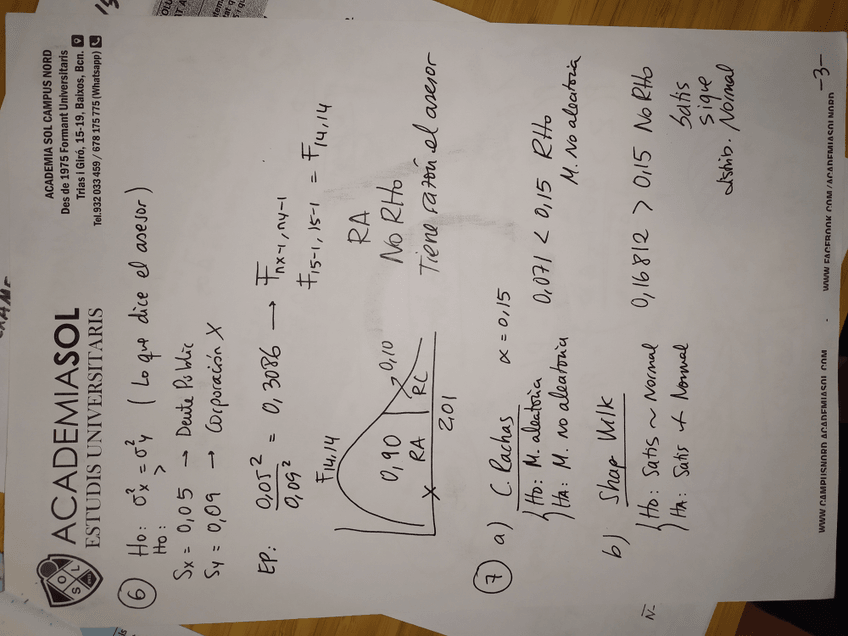 ACADEMIASOL
ESTUDIS UNIVERSITARIS
SOL
ACADEMIA SOL CAMPUS NORD
Des de 1975 Formant Universitaris
Trias i Giró, 15-19, Baixos, Bcn.
Tel.932 033 459 / 678 175 775 (Whatsapp)
6 Ho: σ²x = σ²y (Lo que dice el asesor)
Ho: >
Sx = 0,05 → Deute Públic
Sy = 0,09 → Corporación X
EP: 0,05² / 0,09² = 0,3086 → F nx-1, ny-1
F 15-1, 15-1 = F 14,14
F 14,14
0,90
RA
RC
0,10
X
2,01
RA
No RHo
Tiene razón el asesor
7 a) C. Rachas α = 0,15
Ho: M. aleatoria 0,071 < 0,15 RHo
HA: M. no aleatoria M. No aleatoria
b) Shap Wilk
Ho: Satis ~ Normal 0,16812 > 0,15 No RHo
HA: Satis ≁ Normal Satis
sigue
distrib. Normal
WWW.CAMPUSNORD.ACADEMIASOL.COM
WWW.FACEBOOK.COM/ACADEMIASOLNORD
-3-